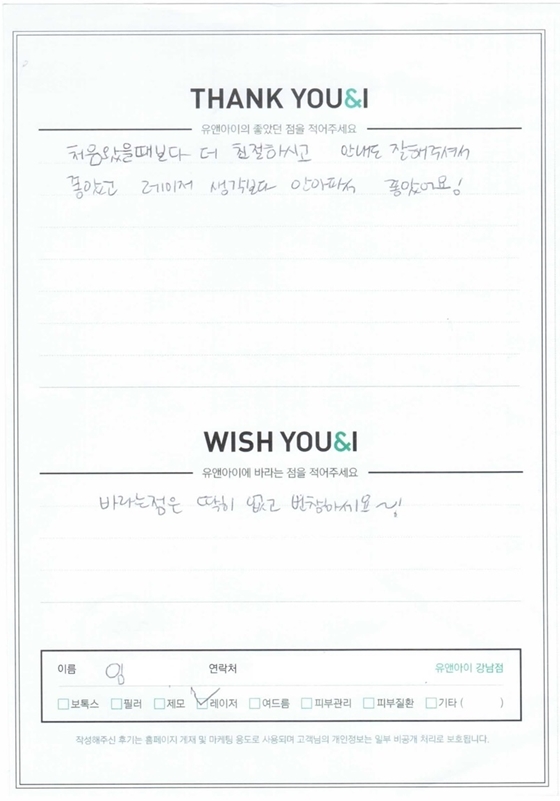 THANK YOU&I
유앤아이의 좋았던 점을 적어주세요
처음왔을때보다 더 친절하시고 안내도 잘해주셔서
좋았고 레이저 생각보다 안아파서 좋았어요!
WISH YOU&I
유앤아이에 바라는 점을 적어주세요
바라는점은 딱히 없고 번창하세요~!
이름 임 연락처 유앤아이 강남점
보톡스 필러 제모 레이저 여드름 피부관리 피부질환 기타 ( )
작성해주신 후기는 홈페이지 게재 및 마케팅 용도로 사용되며 고객님의 개인정보는 일부 비공개 처리로 보호됩니다.